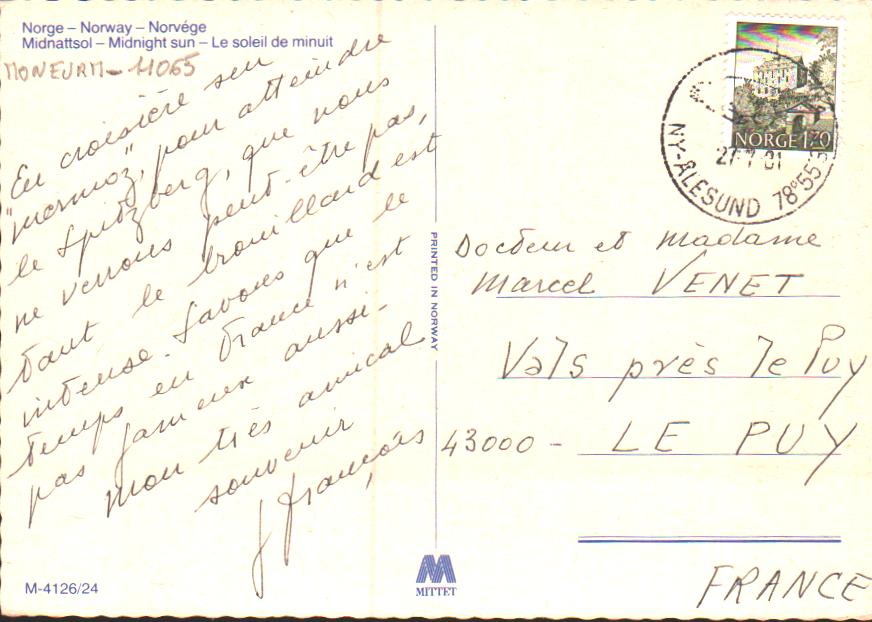 Norge – Norway – Norvége
Midnattsol – Midnight sun – Le soleil de minuit
MONEURM-11065
En croisière sur
"mermoz", pour atteindre
le Spitzberg, que nous
ne verrons peut-être pas,
tant le brouillard est
intense. Savons que le
temps en France n'est
pas fameux aussi-
mon très amical
souvenir
J François
M-4126/24
PRINTED IN NORWAY
MITTET
NORGE 1,70
NY-ÅLESUND 78°55'
27 7 81
Docteur et Madame
Marcel VENET
Vals près le Puy
43000 - LE PUY
FRANCE